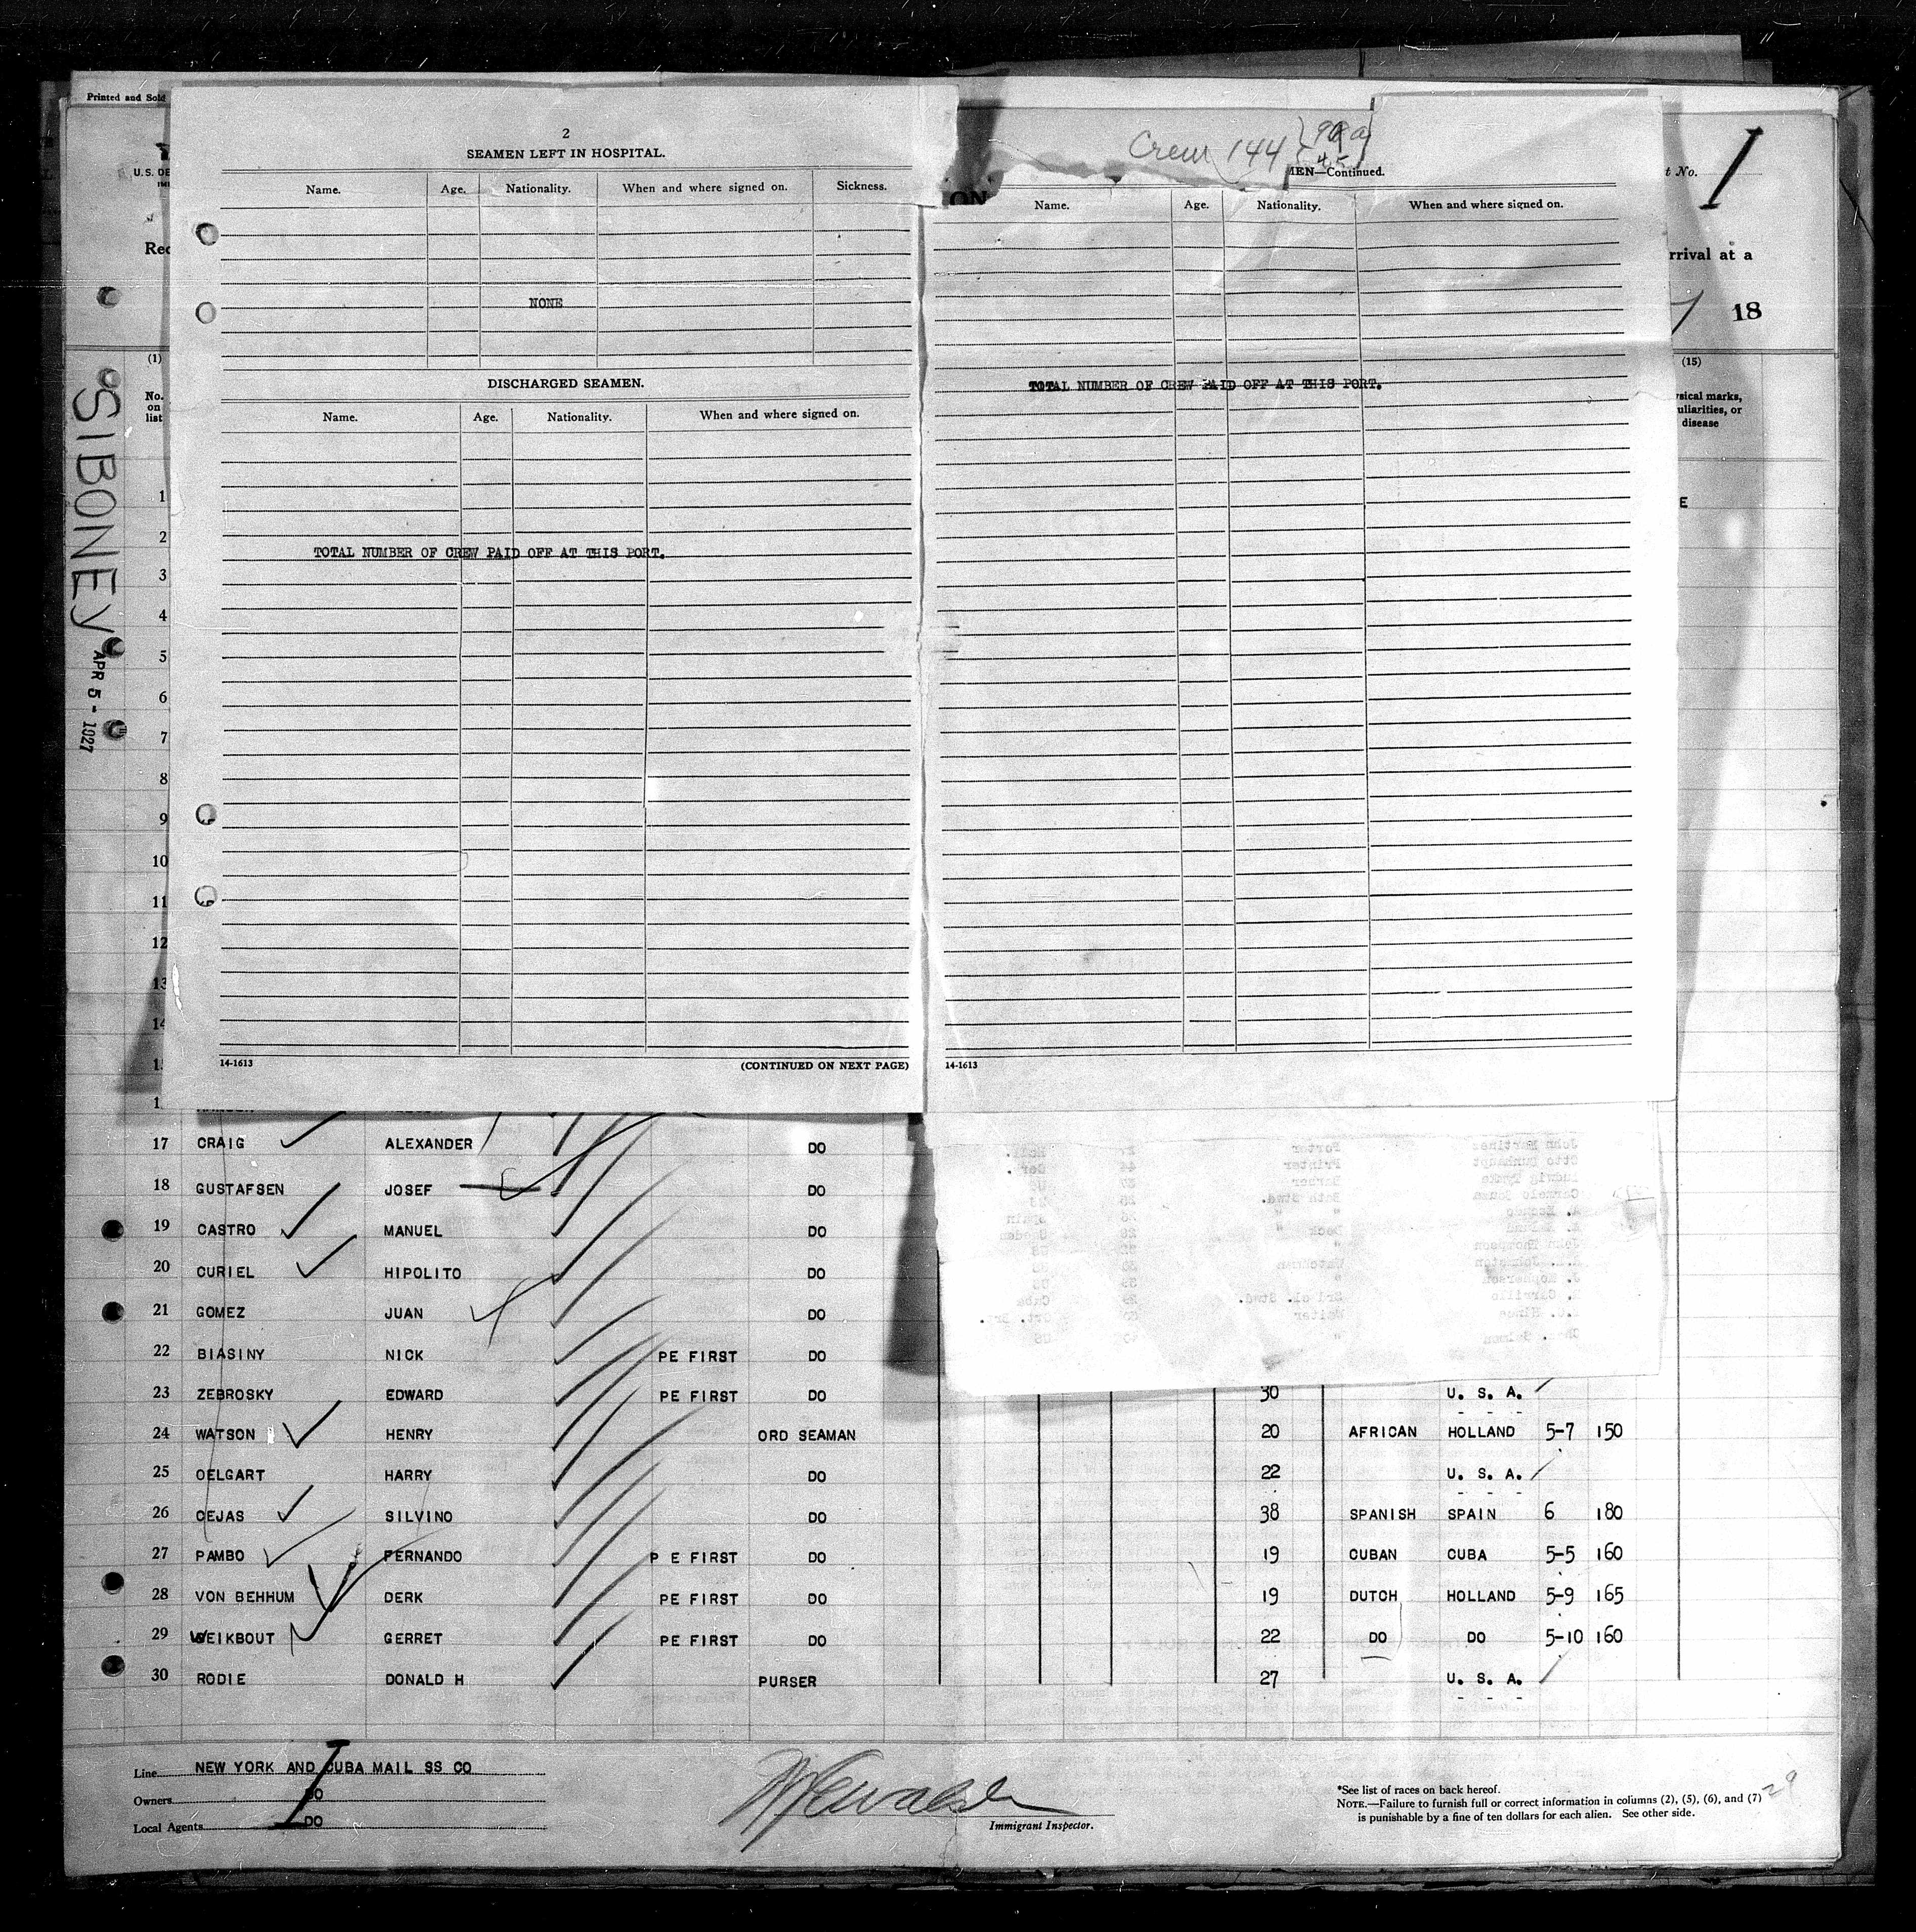 Printed and Sold
U.S. DE
Rec
SIBONEY
APR 5 - 1927
2
SEAMEN LEFT IN HOSPITAL.
Name. Age. Nationality. When and where signed on. Sickness.
NONE
DISCHARGED SEAMEN.
Name. Age. Nationality. When and where signed on.
TOTAL NUMBER OF CREW PAID OFF AT THIS PORT.
14-1613 (CONTINUED ON NEXT PAGE)
Crew 144
MEN—Continued.
Name. Age. Nationality. When and where signed on.
TOTAL NUMBER OF CREW PAID OFF AT THIS PORT.
14-1613
t No. 1
rrival at a
18
(15)
sical marks,
uliarities, or
disease
E
(1)
No.
on
list
1
2
3
4
5
6
7
8
9
10
11
12
13
14
17 CRAIG ALEXANDER DO
18 GUSTAFSEN JOSEF DO
19 CASTRO MANUEL DO
20 CURIEL HIPOLITO DO
21 GOMEZ JUAN DO
22 BIASINY NICK PE FIRST DO
23 ZEBROSKY EDWARD PE FIRST DO 30 U. S. A.
24 WATSON HENRY ORD SEAMAN 20 AFRICAN HOLLAND 5-7 150
25 OELGART HARRY DO 22 U. S. A.
26 CEJAS SILVINO DO 38 SPANISH SPAIN 6 180
27 PAMBO FERNANDO P E FIRST DO 19 CUBAN CUBA 5-5 160
28 VON BEHHUM DERK PE FIRST DO 19 DUTCH HOLLAND 5-9 165
29 WEIKBOUT GERRET PE FIRST DO 22 DO DO 5-10 160
30 RODIE DONALD H PURSER 27 U. S. A.
Line NEW YORK AND CUBA MAIL SS CO
Owners DO
Local Agents DO
Immigrant Inspector.
*See list of races on back hereof.
NOTE.—Failure to furnish full or correct information in columns (2), (5), (6), and (7)
is punishable by a fine of ten dollars for each alien. See other side.
29